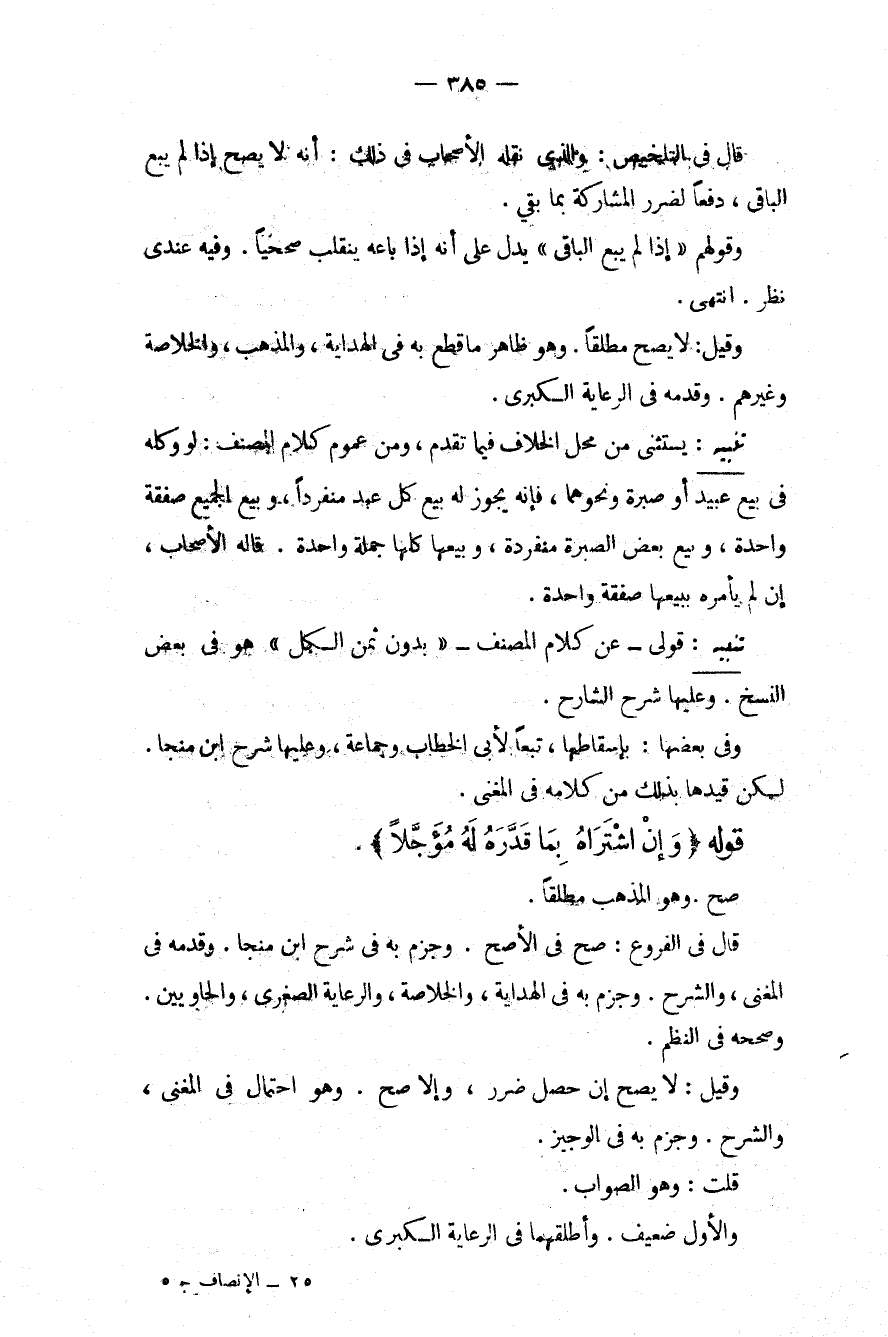 — ٣٨٥ —
قال فى التلخيص : والذى نقله الأصحاب فى ذلك : أنه لا يصح إذا لم يبع
الباقى ، دفعاً لضرر المشاركة بما بقي .
وقولهم « إذا لم يبع الباقى » يدل على أنه إذا باعه ينقلب صحيحاً . وفيه عندى
نظر . انتهى .
وقيل : لا يصح مطلقاً . وهو ظاهر ماقطع به فى الهداية ، والمذهب ، والخلاصة
وغيرهم . وقدمه فى الرعاية الكبرى .
تنبيه : يستثنى من محل الخلاف فيما تقدم ، ومن عموم كلام المصنف : لو وكله
فى بيع عبيد أو صبرة ونحوهما ، فإنه يجوز له بيع كل عبد منفرداً ، و بيع الجميع صفقة
واحدة ، و بيع بعض الصبرة منفردة ، و بيعها كلها جملة واحدة . قاله الأصحاب ،
إن لم يأمره ببيعها صفقة واحدة .
تنبيه : قولى – عن كلام المصنف – « بدون ثمن الكل » هو فى بعض
النسخ . وعليها شرح الشارح .
وفى بعضها : بإسقاطها ، تبعاً لأبى الخطاب وجماعة ، وعليها شرح ابن منجا .
لكن قيدها بذلك من كلامه فى المغنى .
قوله ﴿ وَإِنْ اشْتَرَاهُ بِمَا قَدَّرَهُ لَهُ مُؤَجَّلاً ﴾ .
صح . وهو المذهب مطلقاً .
قال فى الفروع : صح فى الأصح . وجزم به فى شرح ابن منجا . وقدمه فى
المغنى ، والشرح . وجزم به فى الهداية ، والخلاصة ، والرعاية الصغرى ، والحاويين .
وصححه فى النظم .
وقيل : لا يصح إن حصل ضرر ، وإلا صح . وهو احتمال فى المغنى ،
والشرح . وجزم به فى الوجيز .
قلت : وهو الصواب .
والأول ضعيف . وأطلقهما فى الرعاية الكبرى .
٢٥ – الإنصاف ج ٥